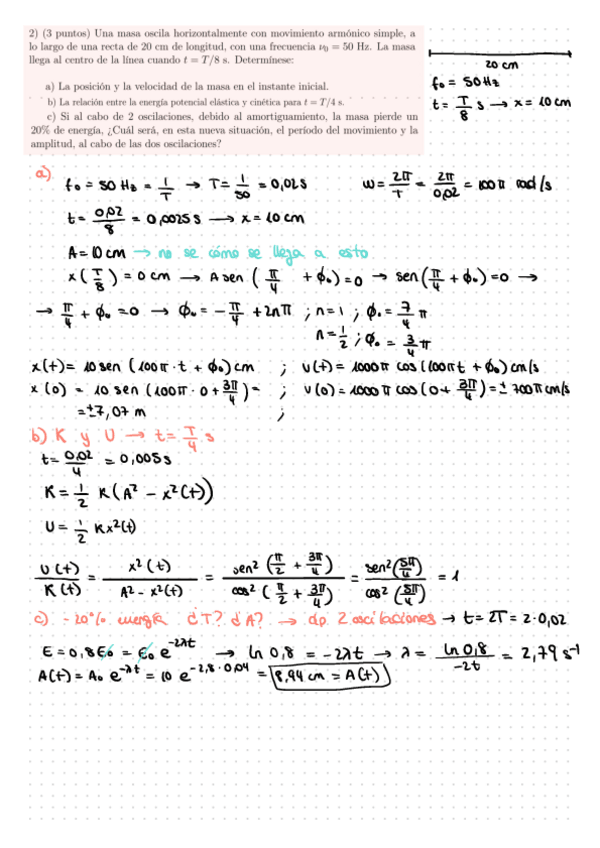 2) (3 puntos) Una masa oscila horizontalmente con movimiento armónico simple, a
lo largo de una recta de 20 cm de longitud, con una frecuencia ν₀ = 50 Hz. La masa
llega al centro de la línea cuando t = T/8 s. Determínese:
a) La posición y la velocidad de la masa en el instante inicial.
b) La relación entre la energía potencial elástica y cinética para t = T/4 s.
c) Si al cabo de 2 oscilaciones, debido al amortiguamiento, la masa pierde un
20% de energía, ¿Cuál será, en esta nueva situación, el período del movimiento y la
amplitud, al cabo de las dos oscilaciones?
20 cm
f₀ = 50 Hz
t = T/8 s → x = 10 cm
a) f₀ = 50 Hz = 1/T → T = 1/50 = 0,02 s   ω = 2π/T = 2π/0,02 = 100π rad/s
t = 0,02/8 = 0,0025 s → x = 10 cm
A = 10 cm → no se cómo se llega a esto
x(T/8) = 0 cm → A sen (π/4 + ϕ₀) = 0 → sen(π/4 + ϕ₀) = 0 →
→ π/4 + ϕ₀ = 0 → ϕ₀ = -π/4 + 2nπ ; n = 1 ; ϕ₀ = 7/4 π
n = 1/2 ; ϕ₀ = 3/4 π
x(t) = 10 sen (100π · t + ϕ₀) cm ; v(t) = 1000π cos (100πt + ϕ₀) cm/s
x(0) = 10 sen (100π · 0 + 3π/4) = ; v(0) = 1000π cos (0 + 3π/4) = ± 700π cm/s
= ±7,07 m ;
b) K y U → t = T/4 s
t = 0,02/4 = 0,005 s
K = 1/2 K (A² - x²(t))
U = 1/2 K x²(t)
U(t)/K(t) = x²(t)/A² - x²(t) = sen² (π/2 + 3π/4)/cos² (π/2 + 3π/4) = sen² (5π/4)/cos² (5π/4) = 1
c) -20% energía ¿T? ¿A? → dp. 2 oscilaciones → t = 2T = 2 · 0,02
E = 0,8E₀ = E₀ e^-2λt → ln 0,8 = -2λt → λ = ln 0,8/-2t = 2,79 s⁻¹
A(t) = A₀ e^-λt = 10 e^-2,8 · 0,04 = 8,94 cm = A(t)